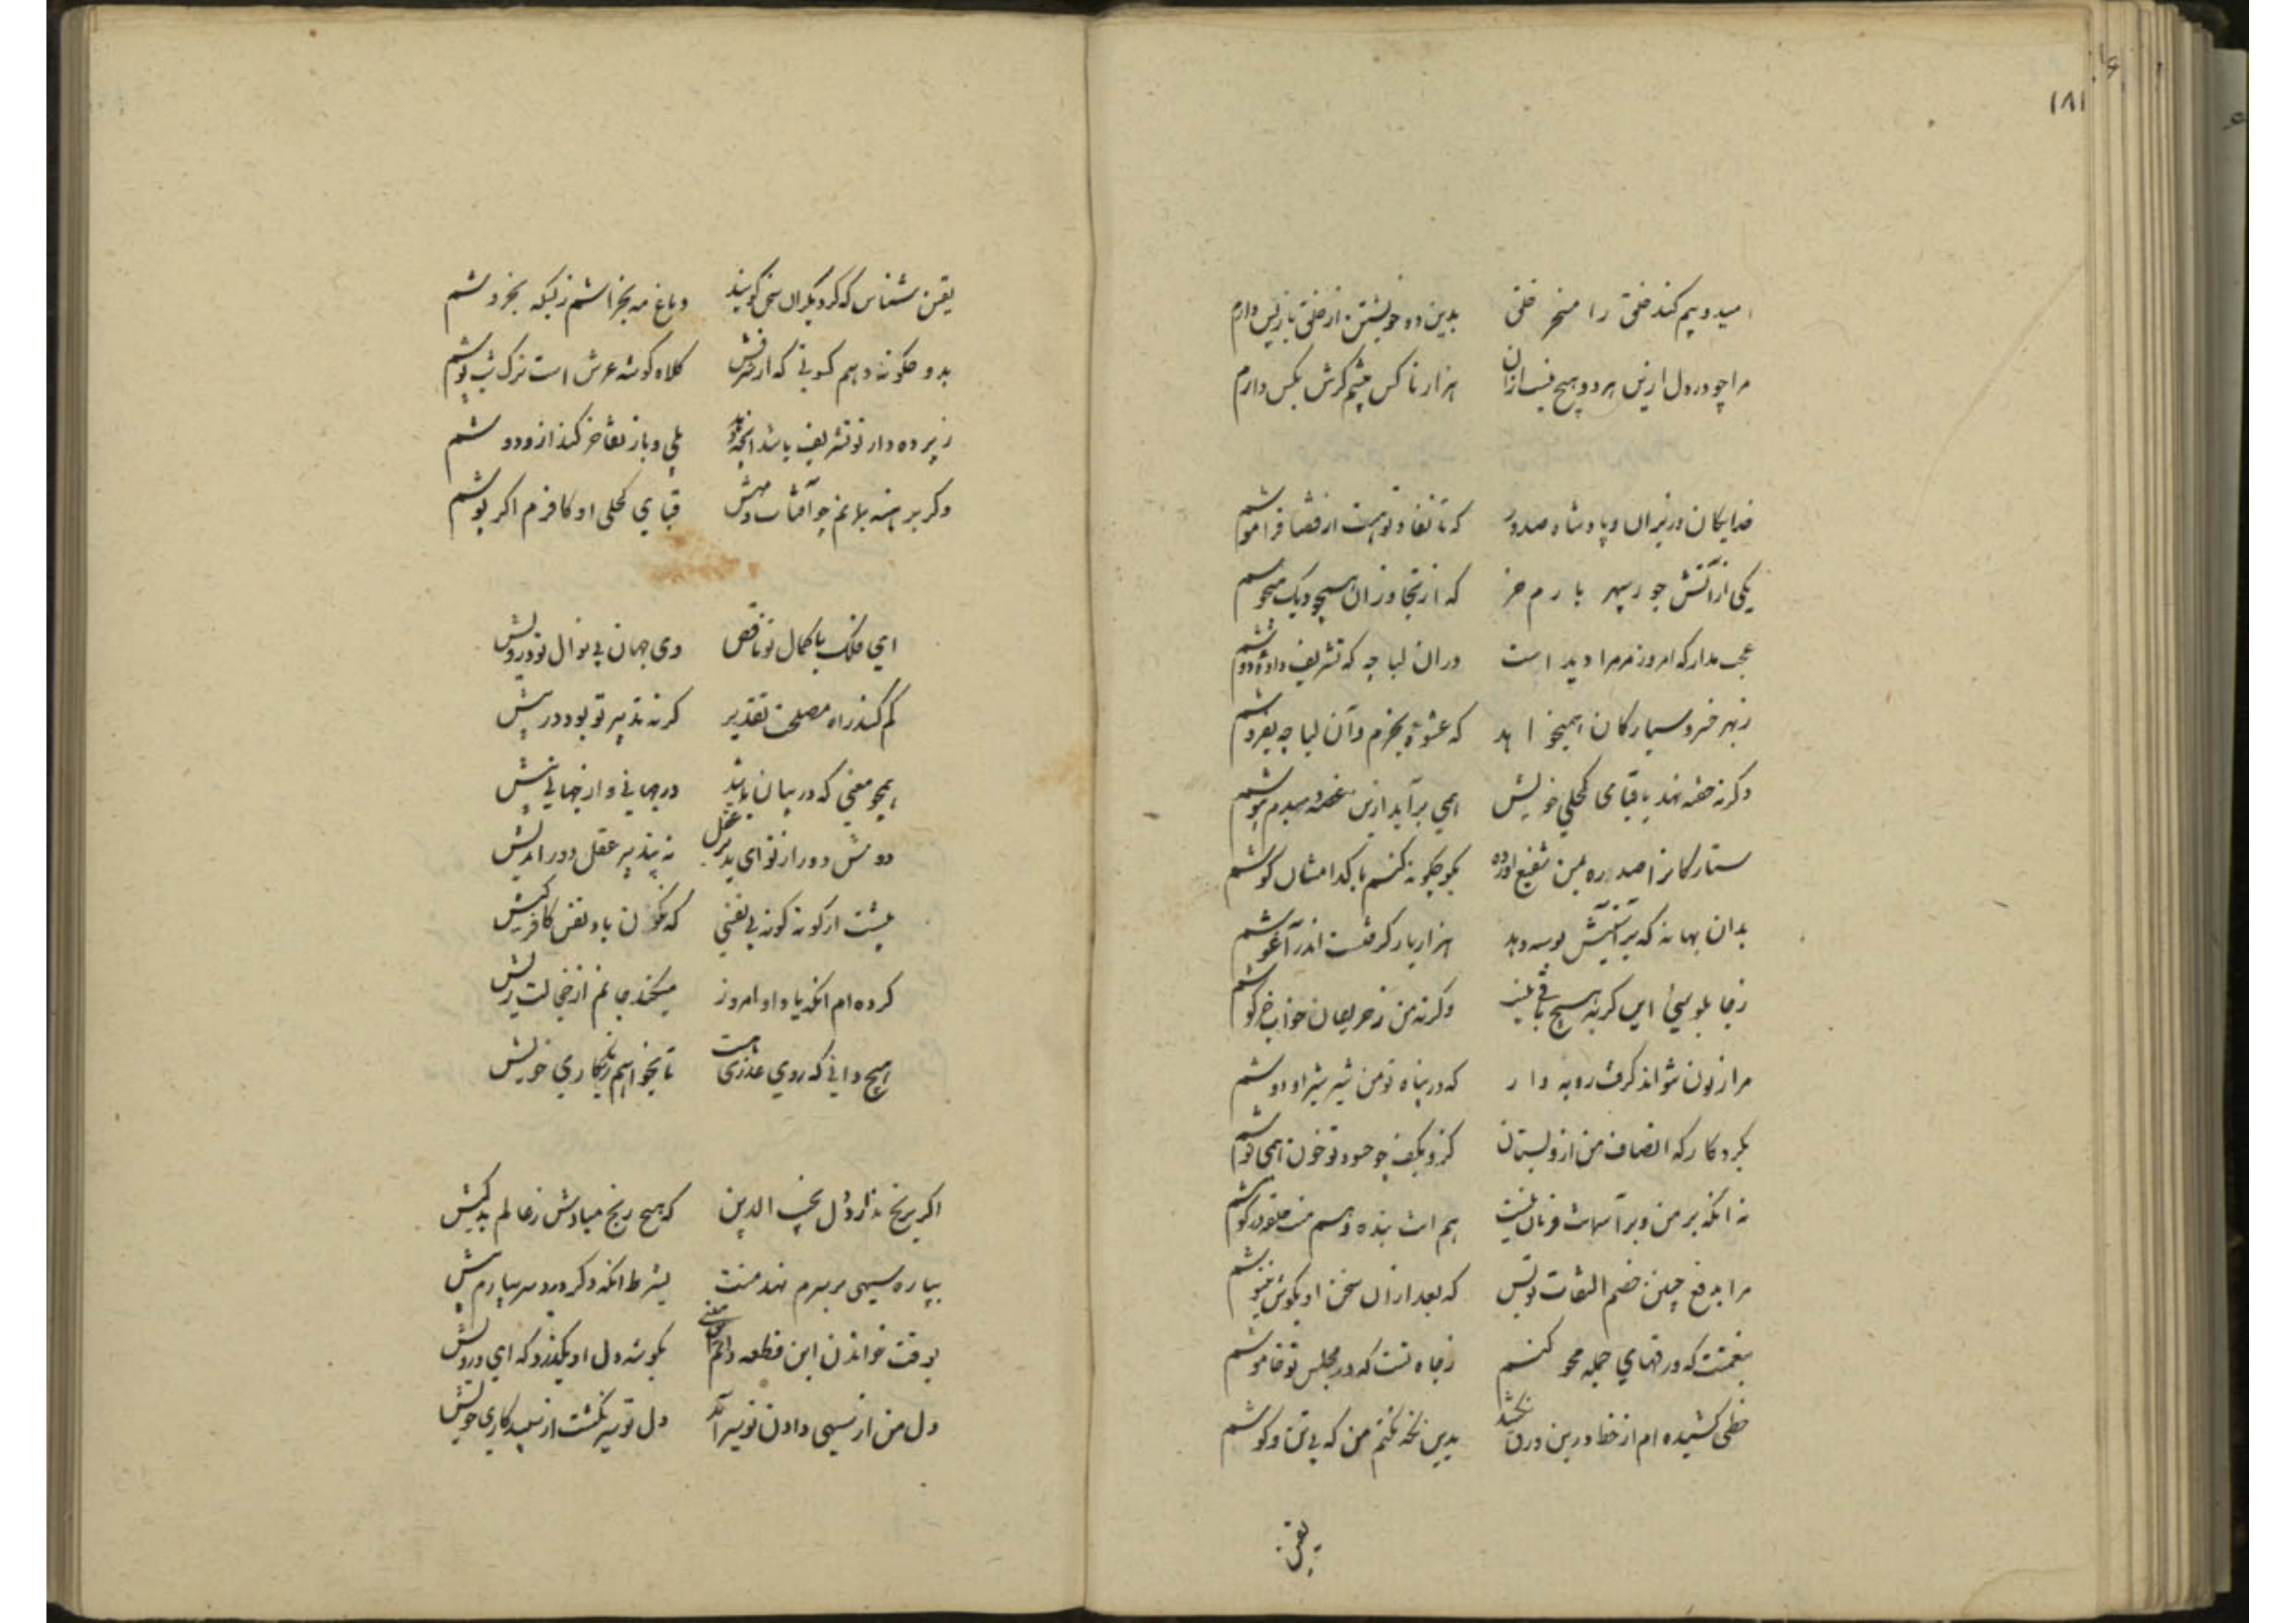 ۱۸۱
امید و بیم کند خلق را مسخر خلق بدین دو خویشتن از خلق باز پس دارم
مرا چو در دل ازین هر دو هیچ نیست ازان هزار ناکس چشمم گرش بکس دارم
خدایگان وزیران و پادشاه صدور که تا تفاوت هست از قضا فراموشم
یکی از آتش جور سپهر بازم خر که از تجاوز آن همچو دیک میجوشم
عجب مدار که امروز مر مرا دید است در ان لباچه که تشریف داده دوشم
ز بهر خسرو سیارکان همیخواهد که عشوه بخرم و آن لباچه بفروشم
وکرنه خفیه نهد با قبای کحلی خویش همی برآید ازین غصه سپیده دم بوشم
ستارکانرا صد ره بمن شفیع آورده بکو چکونه کنم با کدام شان کوشم
بدان بهانه که بر آستینش بوسه دهد هزار بار کرفتست اندر آغوشم
ز چابلوسی این کربه هیچ باقی نیست وکرنه من ز حریفان خواب خرکوشم
مرا زبون نتواند کرفت روبه وار که در پناه تو من شیر شیر اودوشم
بکردکار که انصاف من ازو بستان کزو بکف چو حسود تو خون همی نوشم
نه آنکه بر من و بر آسمانت فرمان نیست هم اوت بنده و هم منت حلقه در کوشم
مرا بدفع چنین خصم التفات تو بس که بعد از ان سخن او بکوش ننیوشم
بنعمتت که ورقهای جمله محو کنم ز جاه تست که در مجلس تو خاموشم
خطی کشیده ام از خطا درین ورق بدین نکفتم من که بی تن و کوشم
یقین
یقین شناس که کر دیکران سخن کویند دماغ مه بخراشم ز بسکه بخروشم
بدو چکونه دهم کسوتی که از شرفش کلاه کوشه عرش است ترک شب پوشم
ز پرده دار تو تشریف باشد آنچه بود بلی و باز تفاخر کند ازو دوشم
وکر برهنه بمانم چو آفتاب و مهش قبای کحلی او کافرم اکر پوشم
ای فلک با کمال تو ناقص وی جهان بی نوال تو درویش
کم کند راه مصلحت تقدیر کرنه تدبیر تو بود در پیش
همچو معنی که در بیان باشد در جهانی و از جهانی بیش
دوش دور از تو ای بدیده عقل نه بتدبیر عقل دور اندیش
بیشت از کونه کونه بی نفسی که نکون باد نفس کافر کیش
کرده ام آنکه یاد او امروز میکند جانم از خجالت ریش
هیچ دانی که روی عذری هست تا بخواهم ز نابکاری خویش
اکر برنج ندارد دل نجیب الدین که هیچ رنج مبادش ز عالم بد کیش
بپاره سیهی بر سرم نهد منت بشرط آنکه دکر درد سر نیارم بیش
بوقت خواندن این قطعه دانم این معنی بکوشه دل او بکذرد که ای درویش
دل من از سیهی دادن تو سیر آمد دل تو سیر نکشت از سپیدکاری خویش